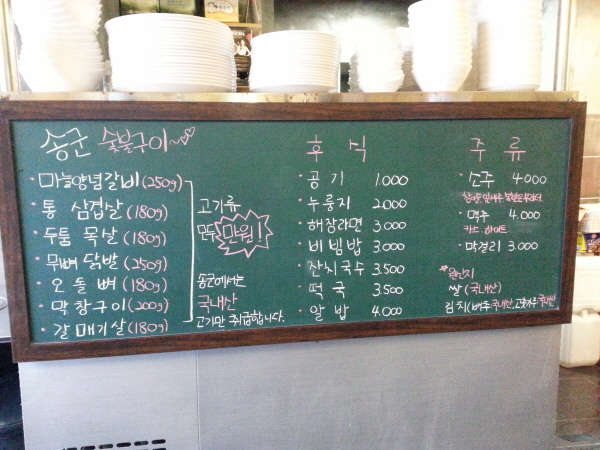 송군 숯불구이~
마늘양념갈비(250g)
통 삼겹살(180g)
두툼 목살(180g)
무뼈 닭발(250g)
오돌뼈(180g)
막창구이(200g)
갈매기살(180g)
고기류
모두 만원!
송군에서는
국내산
고기만 취급합니다.
후식
공기 1.000
누룽지 2.000
해장라면 3.000
비빔밥 3.000
잔치국수 3.500
떡국 3.500
알밥 4.000
주류
소주 4.000
맥주 4.000
카스 하이트
막걸리 3.000
*원산지
쌀(국내산)
김치(배추국내산, 고춧가루국내산